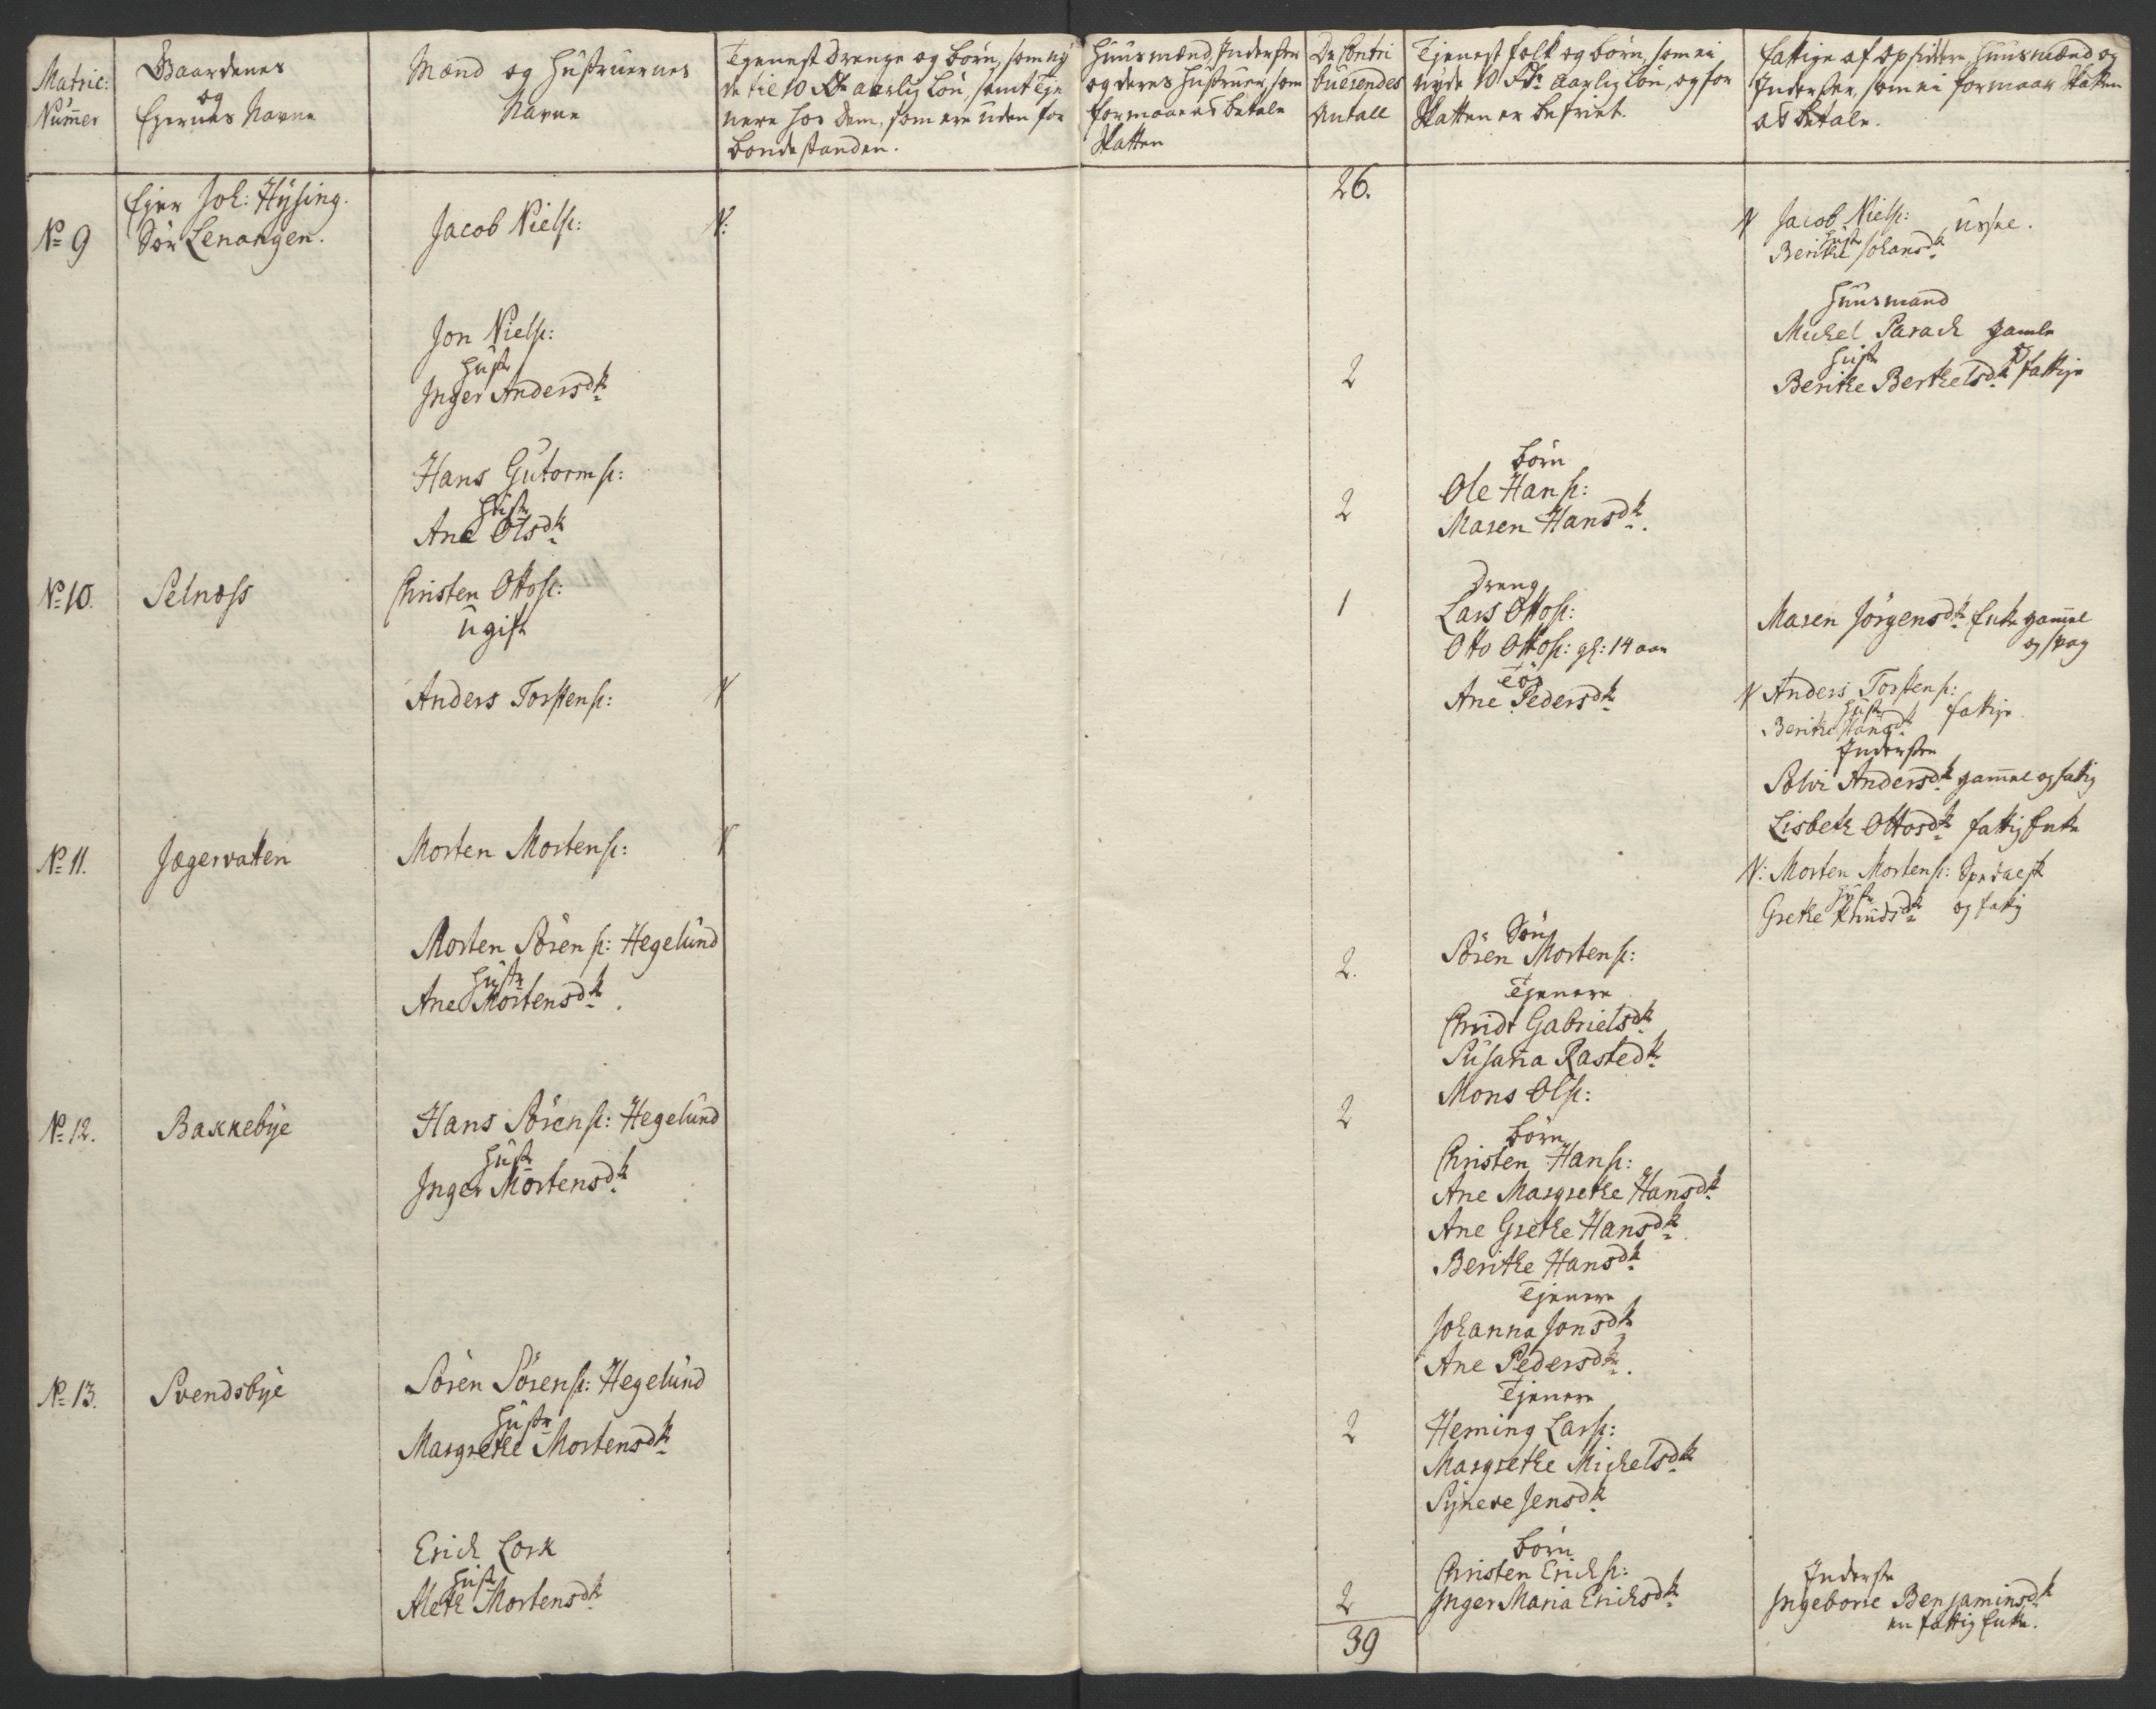 Matric:
Numer
Gaardenes
og
Ejernes Navne
Mænd og Hustruernes
Navne
Tjenest Drenge og Børn, som ny
de til 10 Rdr aarlig Løn, samt Tje
nere hos dem, som ere uden for
bondestanden.
Huusmænd, Inderster
og deres Hustruer, som
formaae at betale
Skatten
De Contri
buerendes
Antall
Tjenest folk og børn, som ei
nyde 10 Rdr aarlig Løn, og for
Skatten er befriet.
fattige af Opsiddere, Huusmænd og
Inderster, som ei formaar Skatten
at betale.
26.
Ejer Joh: Hysing.
No 9
Sør Lenangen.
Jacob Nielss:
N:
N Jacob Nielss:
Hustr
Berithe Johansdr
usle.
Jon Nielss:
Hustr
Inger Andersdr
2
Huusmand
Michel Parach gamle
Hustr og
Berithe Berthelsdr fattige
Hans Gutormss:
Hustr
Ane Olsdr
2
børn
Ole Hanss:
Maren Hansdr.
No 10.
Selnæss
Christen Ottoss:
Ugift
1
Dreng
Lars Ottoss:
Otto Ottoss: gl: 14 aar
Tøs
Ane Pedersdr
Maren Jørgensdr Enke gammel
og svag
Anders Torstenss:
N
N Anders Torstenss:
Hustr
Berithe Hansdr
fattige
Inderster
Solvi Andersdr gammel og fattig
Lisbeth Ottosdr fattig Enke
No 11.
Jægervatten
Morten Mortenss:
N
N: Morten Mortenss: Spedalsk
Hustr
Grethe Knudsdr og fattig
Morten Sørenss: Hegelund
Hustr
Ane Mortensdr.
2.
Søn
Søren Mortenss:
Tjenere
Gabrielsdr
Susana Rastedr
Mons Olss:
No 12.
Bakkebye
Hans Sørenss: Hegelund
Hustr
Inger Mortensdr
2
Børn
Christen Hanss:
Ane Margrethe Hansdr
Ane Grethe Hansdr
Berithe Hansdr
Tjenere
Johanna Jonsdr
Ane Pedersdr.
No 13.
Svendsbye
Søren Sørenss: Hegelund
Hustr
Margrethe Mortensdr
2
Tjenere
Heming Larss:
Margrethe Michelsdr
Syneve Jensdr
Erich Lork
Hustr
Aleth Mortensdr
2
børn
Christen Erichss:
Inger Maria Erichsdr
Inderste
Ingeborre Benjaminsdr
en fattig Enke.
39